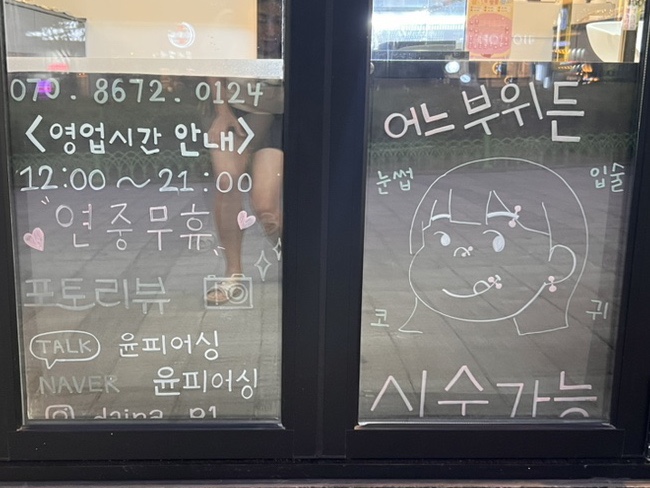 070.8672.0124
<영업시간 안내>
12:00 ~ 21:00
"연중무휴"
포토리뷰
TALK 윤피어싱
NAVER 윤피어싱
어느 부위든
눈썹 입술
코 귀
시수가능